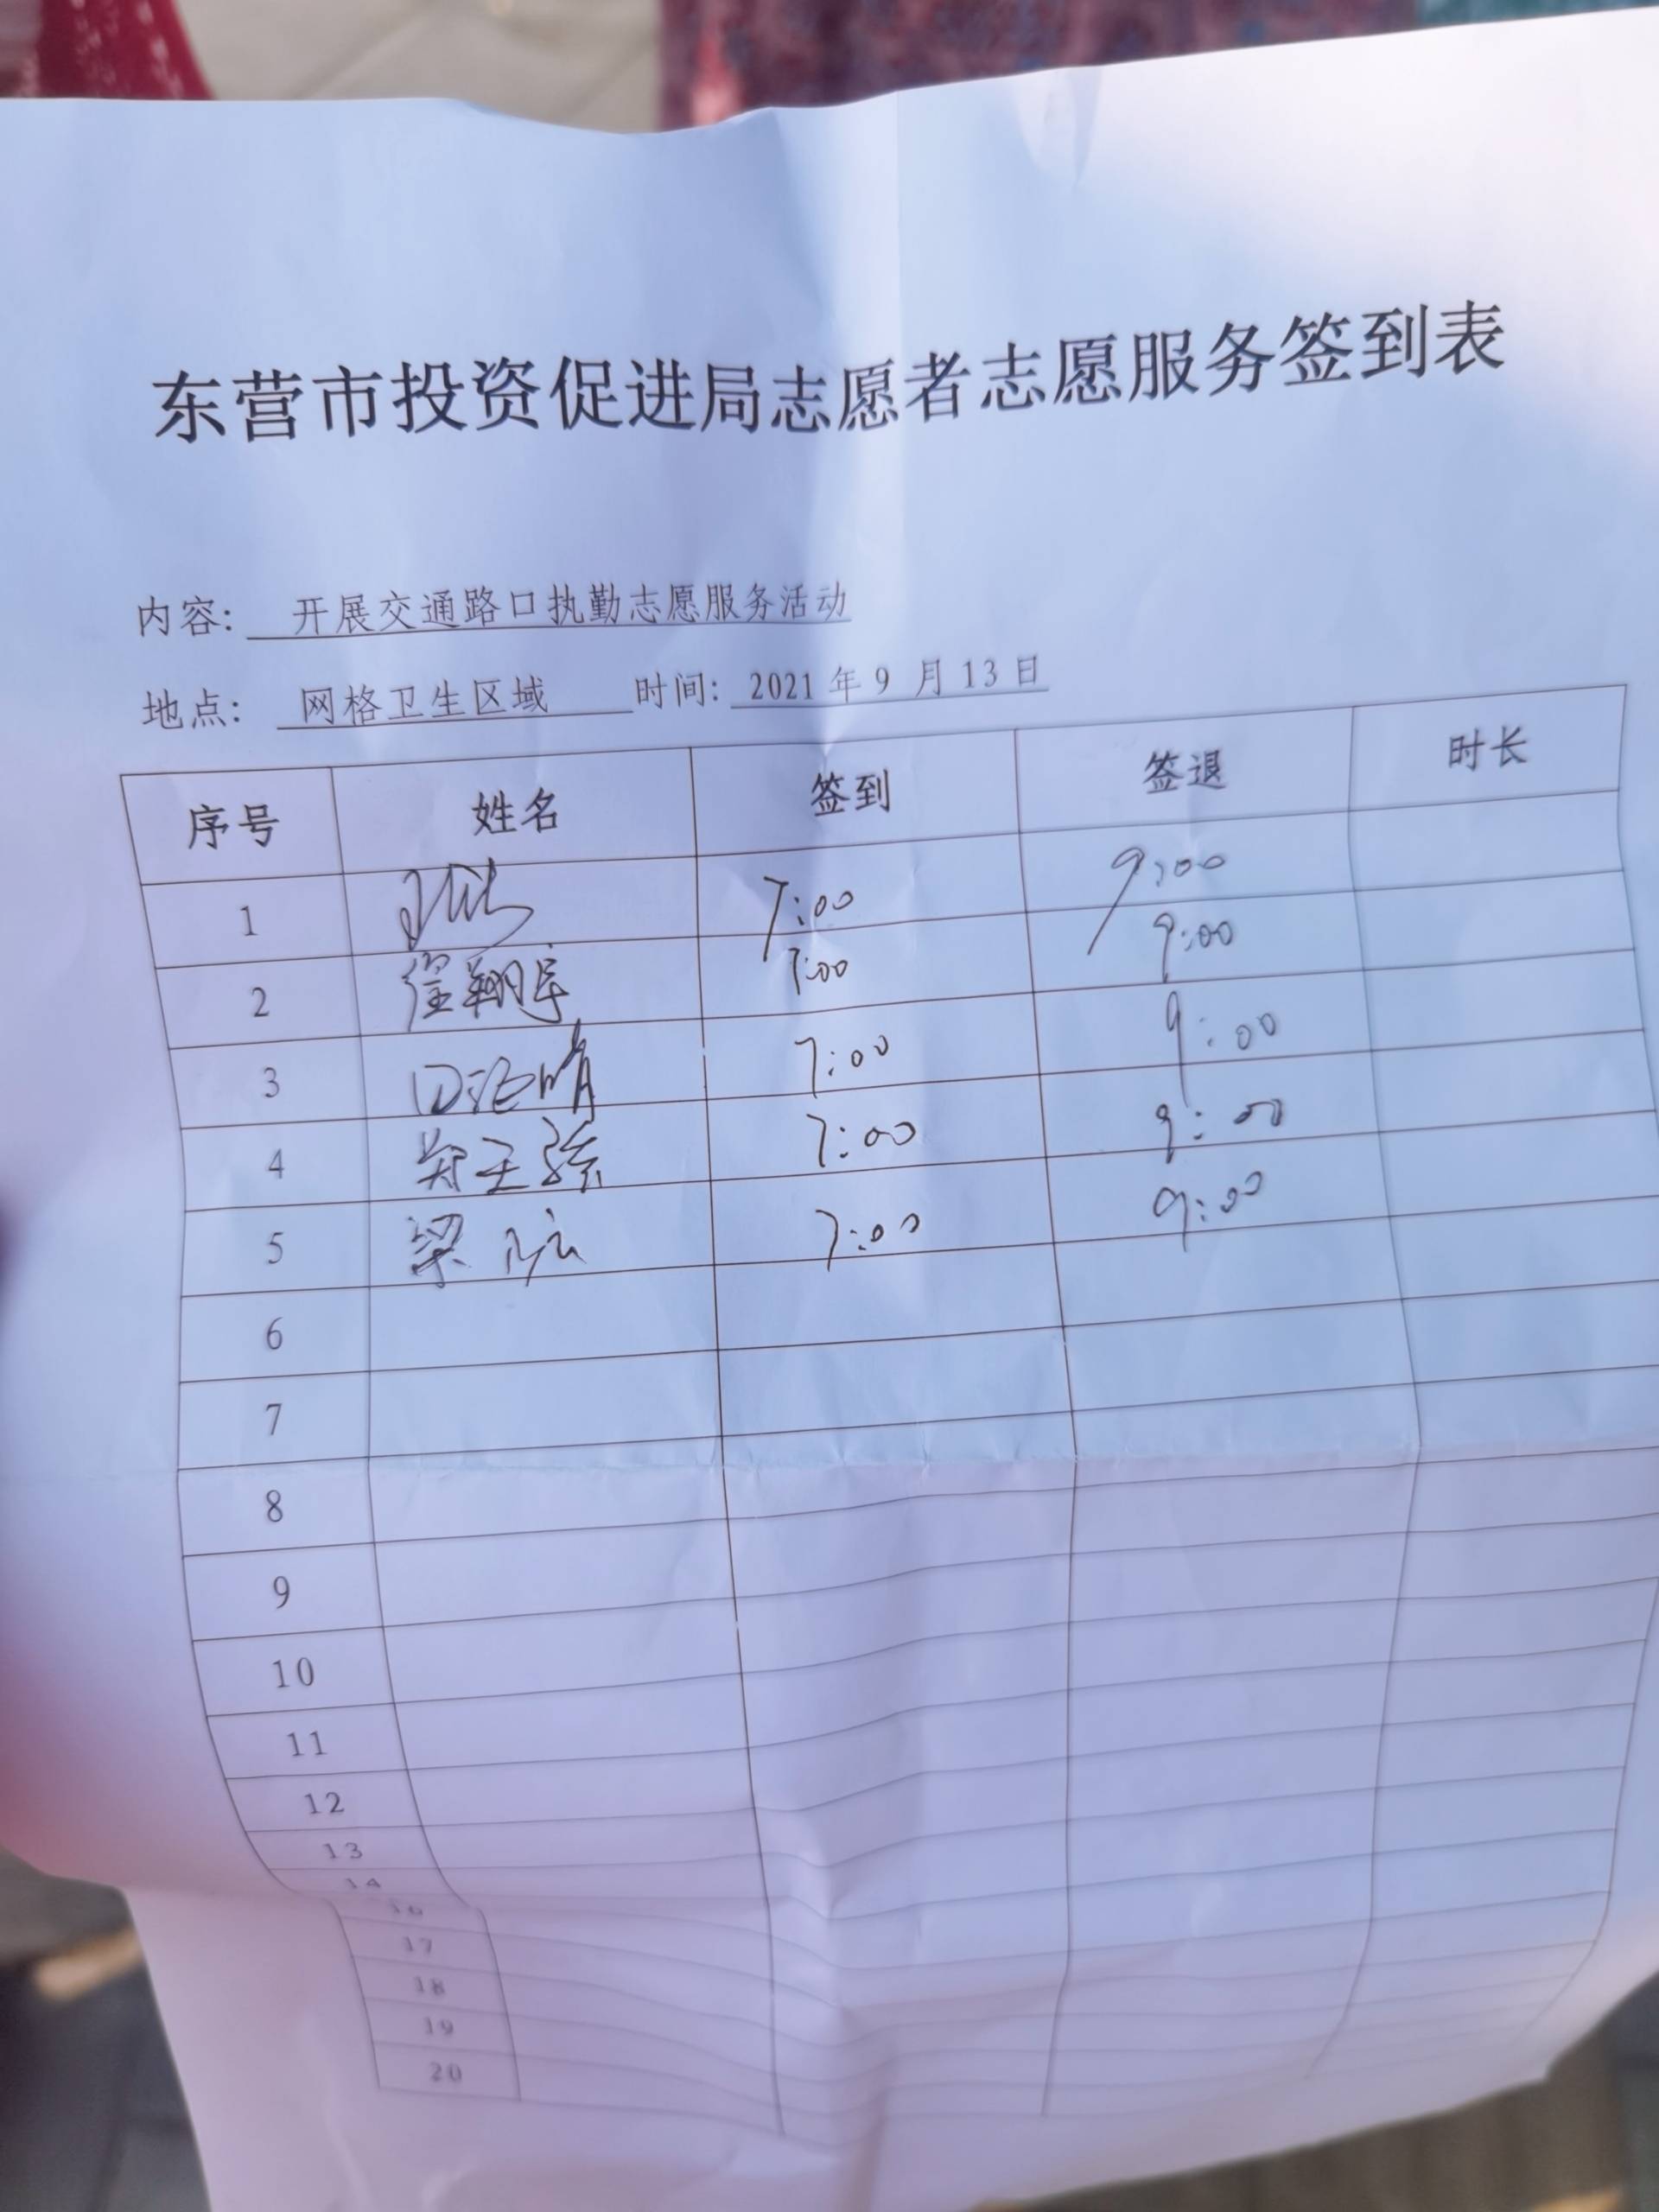 东营市投资促进局志愿者志愿服务签到表
内容: 开展交通路口执勤志愿服务活动
地点: 网格卫生区域 时间: 2021年9月13日
序号 姓名 签到 签退 时长
1 7:00 9:00
2 翔宇 7:00 9:00
3 7:00 9:00
4 7:00 9:00
5 梁 7:00 9:00
6
7
8
9
10
11
12
13
14
16
17
18
19
20